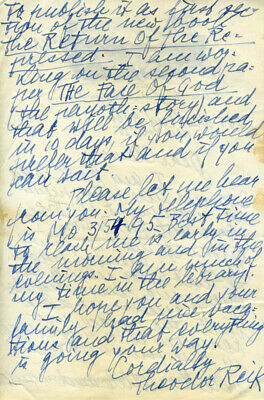 to publish it as first sec-
tion of the new book
the Return Of the Re-
pressed. I am wor-
king on the second pa-
per The Face of God
(the              story) and
that will be finished
in 10 days, if you would
prefer that and if you
can wait.
Please let me hear
from you. My telephone
is Mo 3/5495. Best time
to reach me is early in
the morning and in the
evenings. I am much of
my time in the library.
I hope you and your
family had nice vaca-
tions and that everything
is going your way.
Cordially
Theodor Reik